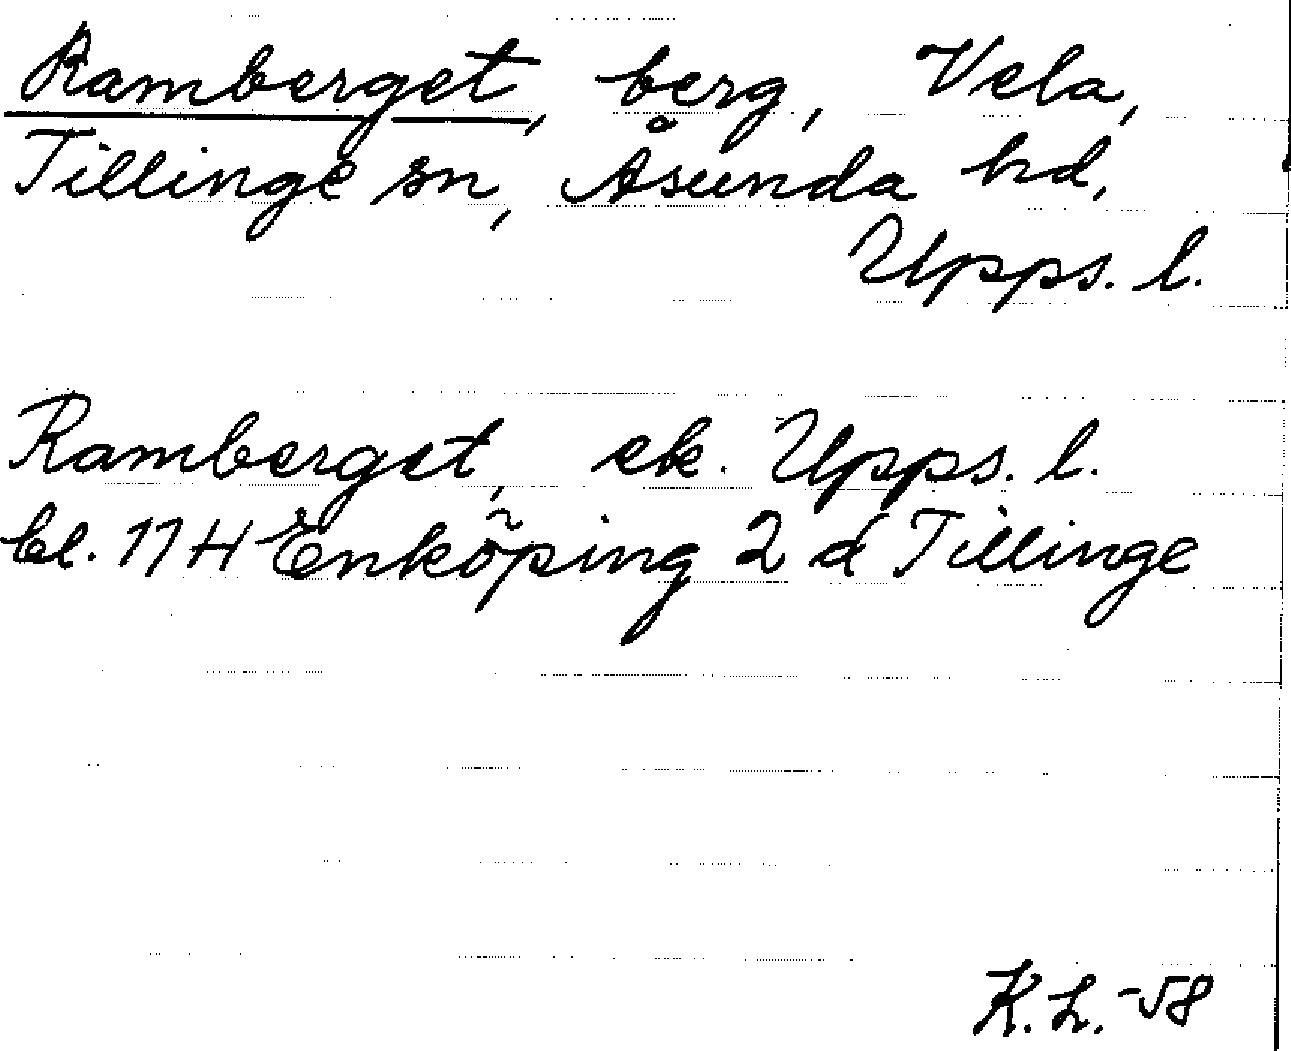 Ramberget, berg, Vela,
Tillinge sn, Åsunda hd,
Upps. l.
Ramberget, ek. Upps. l.
bl. 11 H Enköping 2 d Tillinge
K. L. -58